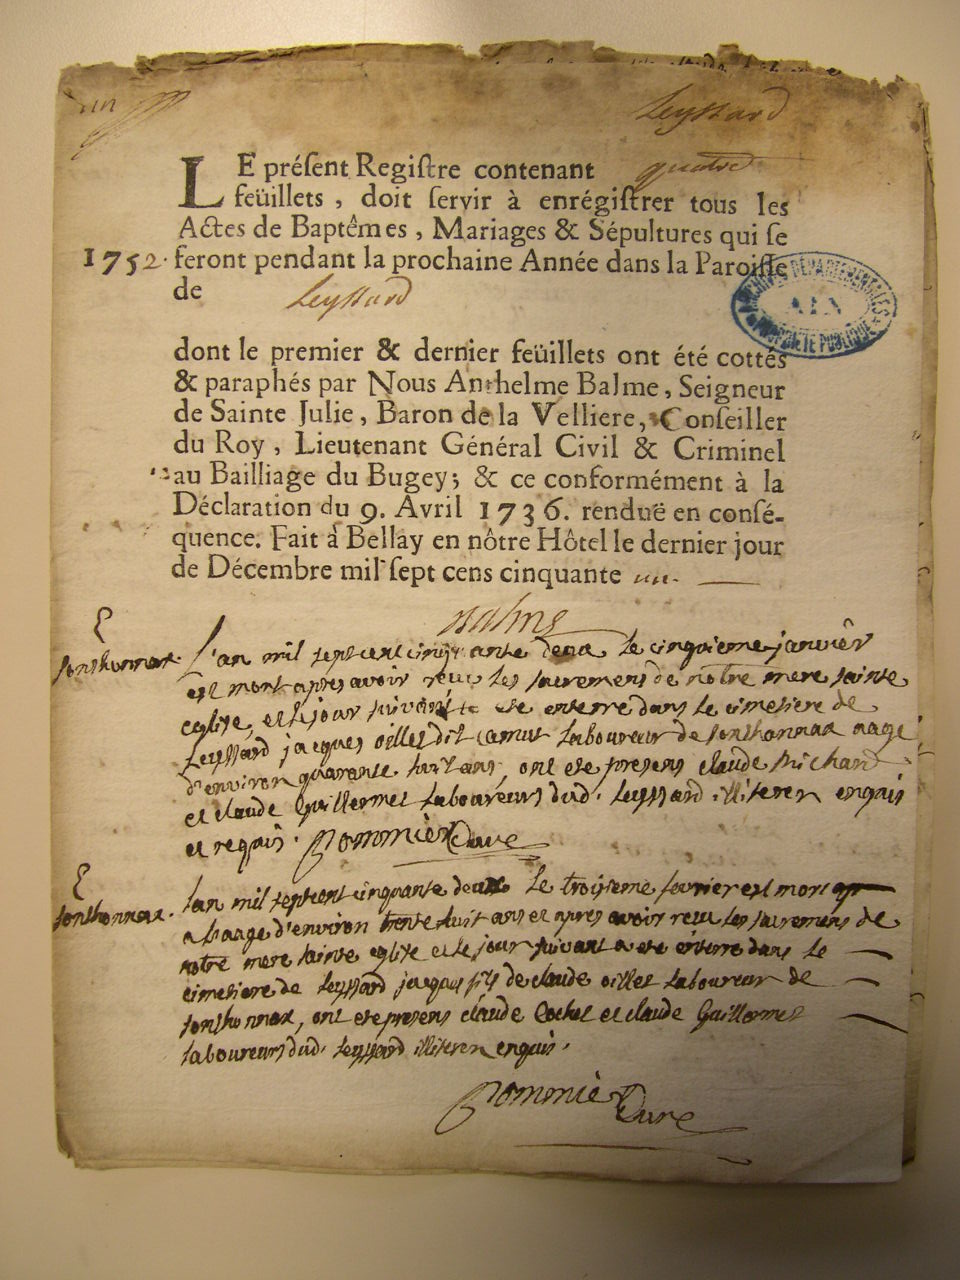 un
Leyssard
LE préſent Regiſtre contenant quatre
feüillets, doit ſervir à enrégiſtrer tous les
Actes de Baptêmes, Mariages & Sépultures qui ſe
1752. feront pendant la prochaine Année dans la Paroiſſe
de Leyssard
ARCHIVES DÉPARTEMENTALES
AIN
PROPRIÉTÉ PUBLIQUE
dont le premier & dernier feüillets ont été cottés
& paraphés par Nous Anthelme Balme, Seigneur
de Sainte Julie, Baron de la Velliere, Conſeiller
du Roy, Lieutenant Général Civil & Criminel
au Bailliage du Bugey; & ce conformément à la
Déclaration du 9. Avril 1736. renduë en conſé-
quence. Fait à Bellay en nôtre Hôtel le dernier jour
de Décembre mil ſept cens cinquante un.
Balme
sonthonnax. L'an mil sept cent cinquante deux le cinquieme janvier
est mort apres avoir reçu les sacremens de notre mere sainte
eglise, et le jour suivant a ete enterre dans le cimetiere de
Leyssard jacques oillet dit camut laboureur de sonthonnax aagé
d'environ quarante huit ans, ont ete presens claude Michard
et claude Guillermet laboureurs dud. Leyssard illiteren enquis
et requis. Pommier Curé
sonthonnax. lan mil sept cent cinquante deux le troisieme fevrier est mort
a laage d'environ trente huit ans et apres avoir reçu les sacremens de
notre mere sainte eglise et le jour suivant a ete enterre dans le
cimetiere de Leyssard jacques fils de claude oillet laboureur de
sonthonnax, ont ete presens claude Cochet et claude Guillermet
laboureurs dud. Leyssard illiteren enquis.
Pommier Curé